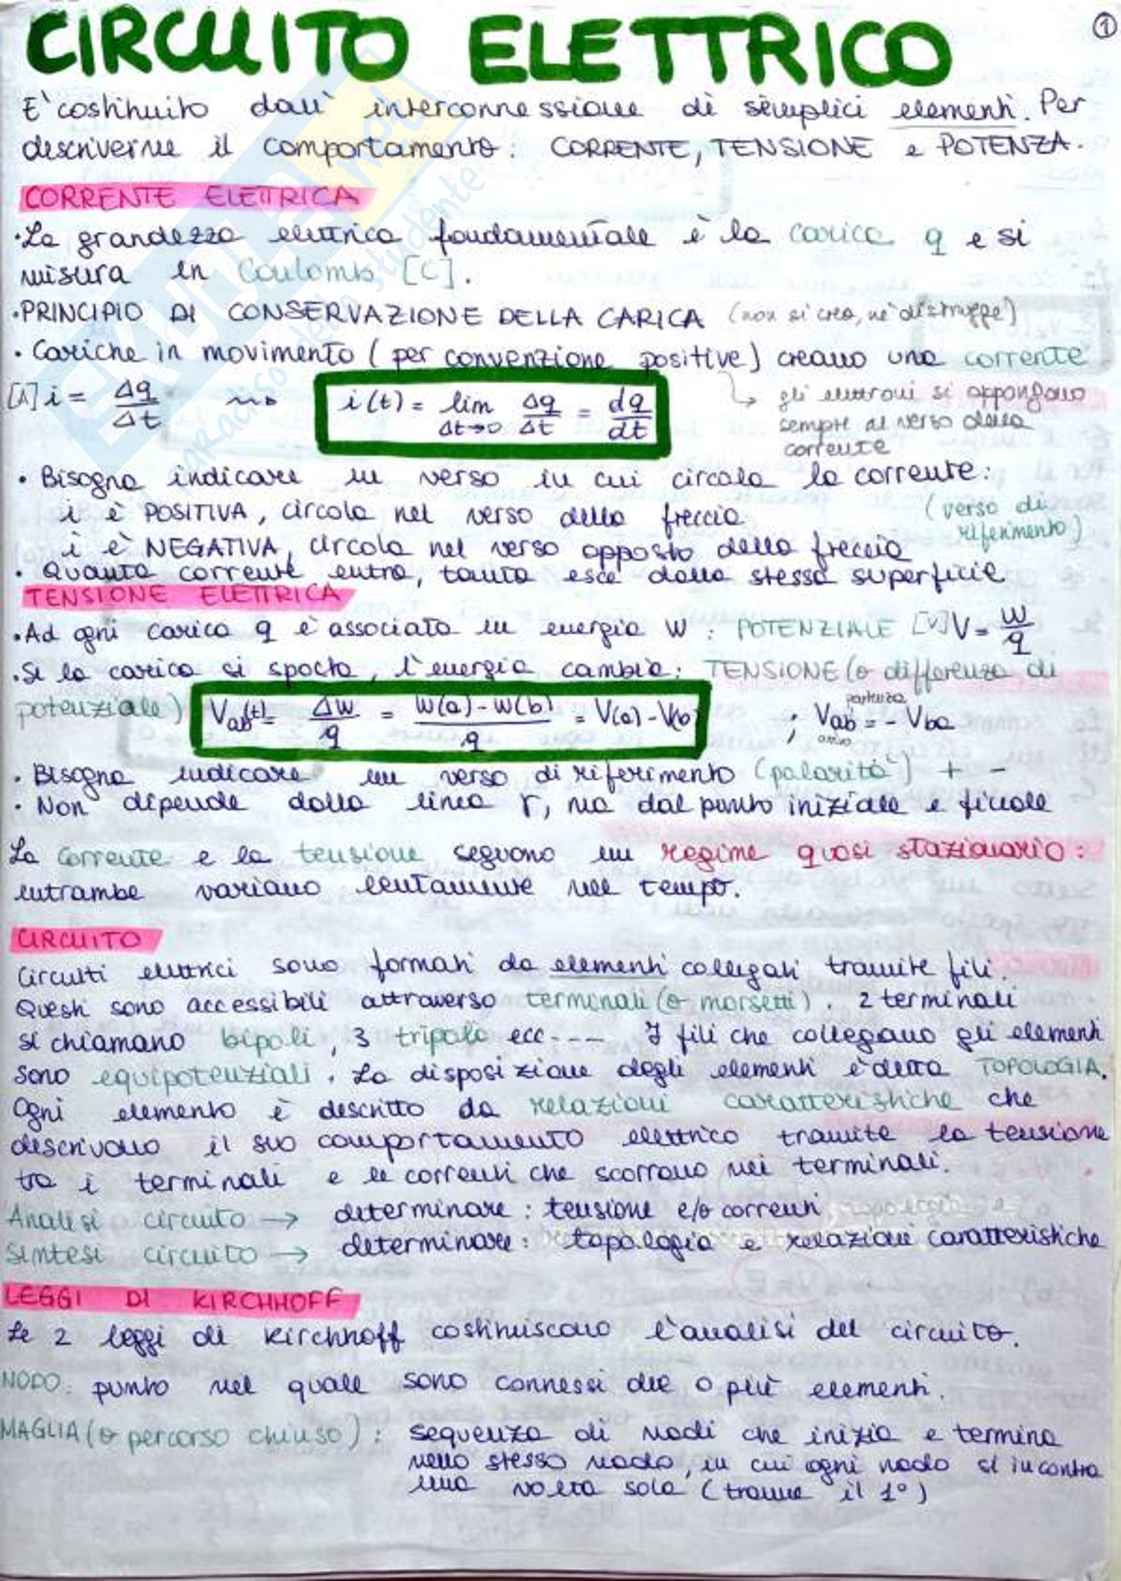 CIRCUITO ELETTRICO
1
E' costituito dall' interconnessione di semplici elementi. Per
descriverne il comportamento: CORRENTE, TENSIONE e POTENZA.
CORRENTE ELETTRICA
·La grandezza elettrica fondamentale è la carica q e si
misura in Coulomb [C].
·PRINCIPIO DI CONSERVAZIONE DELLA CARICA (non si crea, nè distrugge)
· Cariche in movimento (per convenzione positive) creano una corrente
[A] i = Δq/Δt ~> i(t) = lim Δt→0 Δq/Δt = dq/dt
↳ gli elettroni si oppongono
sempre al verso della
corrente
· Bisogna indicare un verso in cui circola la corrente:
i è POSITIVA, circola nel verso della freccia (verso di
i è NEGATIVA, circola nel verso opposto della freccia riferimento)
· Quanta corrente entra, tanta esce dalla stessa superficie
TENSIONE ELETTRICA
·Ad ogni carica q è associata un energia W : POTENZIALE [V] V = W/q
·Se la carica si sposta, l'energia cambia: TENSIONE (o differenza di
potenziale) Vab(t) = ΔW/q = W(a)-W(b)/q = V(a)-V(b) ; Vab = - Vba
partenza
arrivo
· Bisogna indicare un verso di riferimento (polarità) + -
· Non dipende dalla linea γ, ma dal punto iniziale e finale
La corrente e la tensione seguono un regime quasi stazionario:
entrambe variano lentamente nel tempo.
CIRCUITO
Circuiti elettrici sono formati da elementi collegati tramite fili.
Questi sono accessibili attraverso terminali (o morsetti). 2 terminali
si chiamano bipoli, 3 tripolo ecc---- I fili che collegano gli elementi
sono equipotenziali. La disposizione degli elementi è detta TOPOLOGIA.
Ogni elemento è descritto da relazioni caratteristiche che
descrivono il suo comportamento elettrico tramite la tensione
tra i terminali e le correnti che scorrono nei terminali.
Analisi circuito → determinare: tensione e/o correnti
Sintesi circuito → determinare: topologia e relazioni caratteristiche
LEGGI DI KIRCHHOFF
Le 2 leggi di Kirchhoff costituiscono l'analisi del circuito.
NODO: punto nel quale sono connessi due o più elementi.
MAGLIA (o percorso chiuso): sequenza di nodi che inizia e termina
nello stesso nodo, in cui ogni nodo si incontra
una volta sola (tranne il 1°)